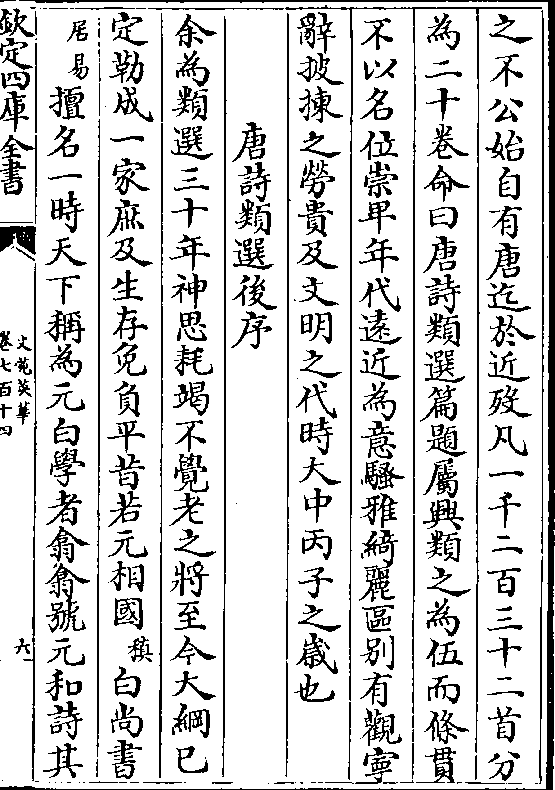 之不公始自有唐迄於近歿凡一千二百三十二首分
為二十卷命曰唐詩類選篇題屬興類之為伍而條貫
不以名位崇卑年代遠近為意騷雅綺麗區别有觀寧
辭披揀之勞貴及文明之代時大中丙子之歲也
唐詩類選後序
余為類選三十年神思耗竭不覺老之將至今大綱已
定勒成一家庶及生存免負平昔若元相國稹白尚書
居易擅名一時天下稱為元白學者翕翕號元和詩其
欽定四庫全書
文苑英華
卷七百十四
六